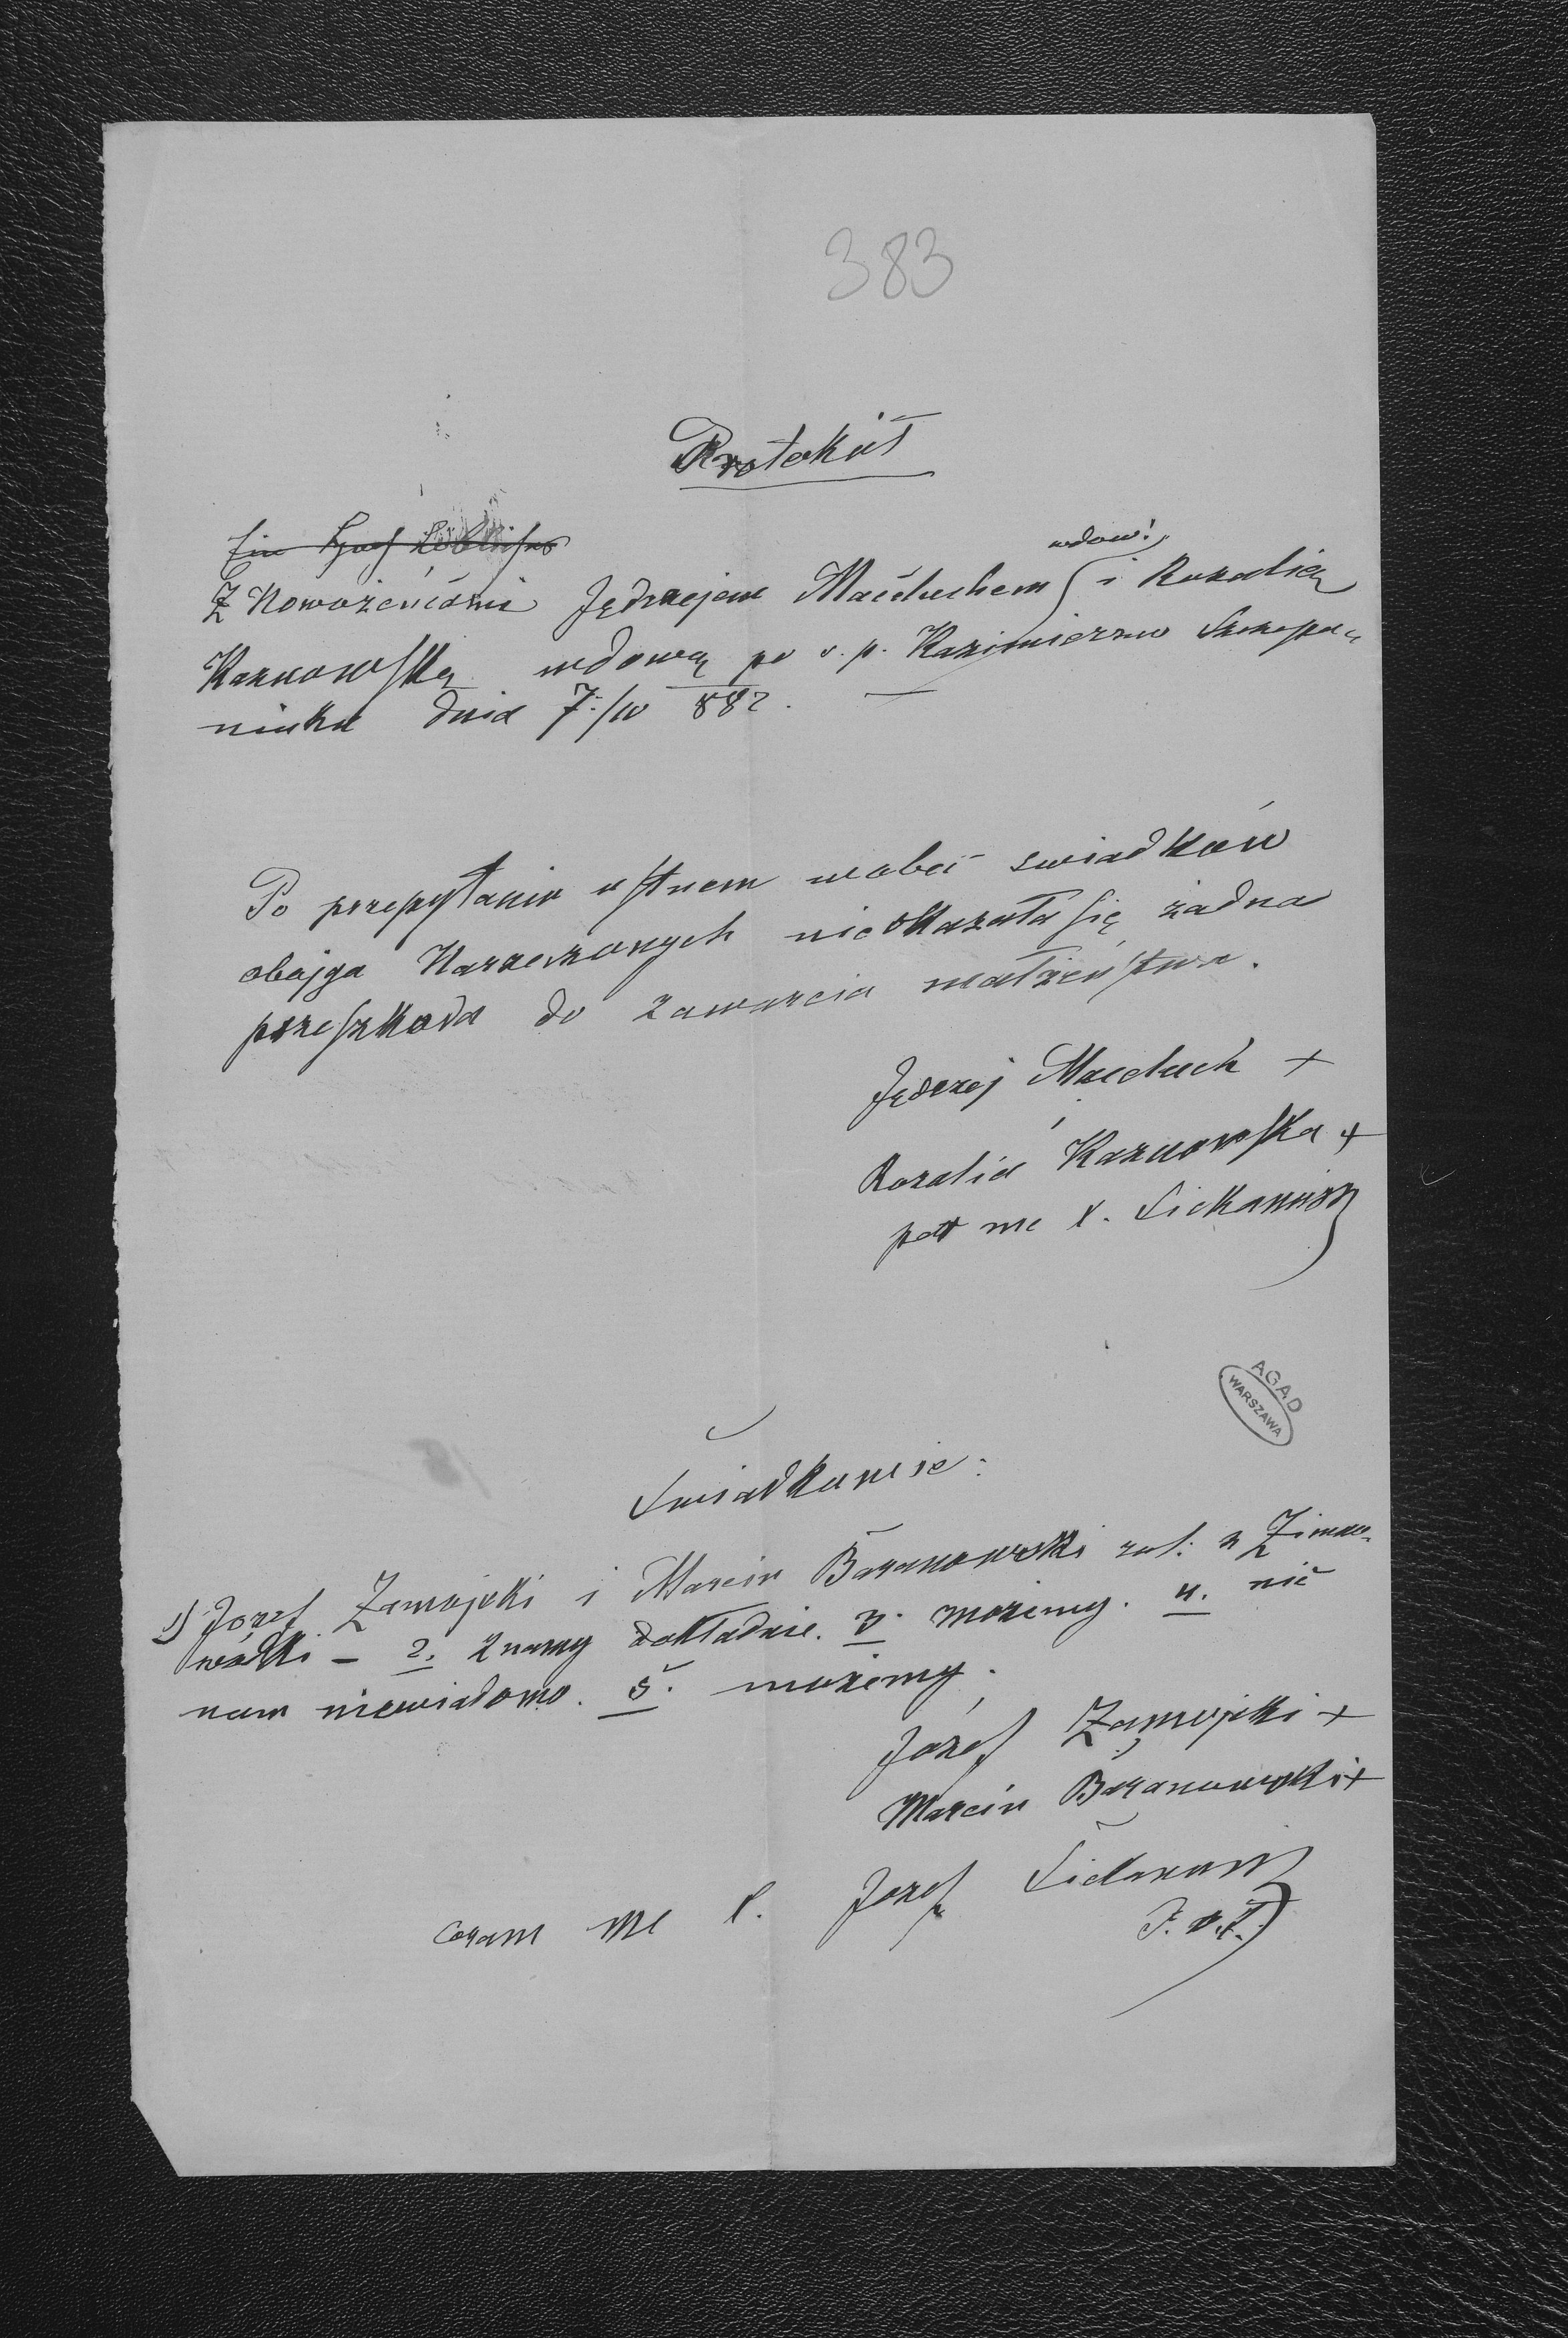 383
Protokół
wdow:
Z Nowożeńcami Jędrzejem Maćluchem i Rozalią
Karnowską wdową po ś. p. Kazimierzu Szczepa-
niuku dnia 7./IV 882.
Po przepytaniu ustnem wobec swiadków
obojga Narzeczonych nieokazała się żadna
przeszkoda do zawarcia małżeństwa.
Jędrzej Macluch +
Rozalia Karnowska +
me X.
AGAD
WARSZAWA
Świadkowie:
1) Jozef Zamojski i Marcin Baranowski rol: z Zimno-
wódki - 2. znamy dokładnie. 3. możemy. 4. nic
nam niewiadomo. 5. możemy.
Józef Zamojski +
Marcin Baranowski +
coram me X. Jozef